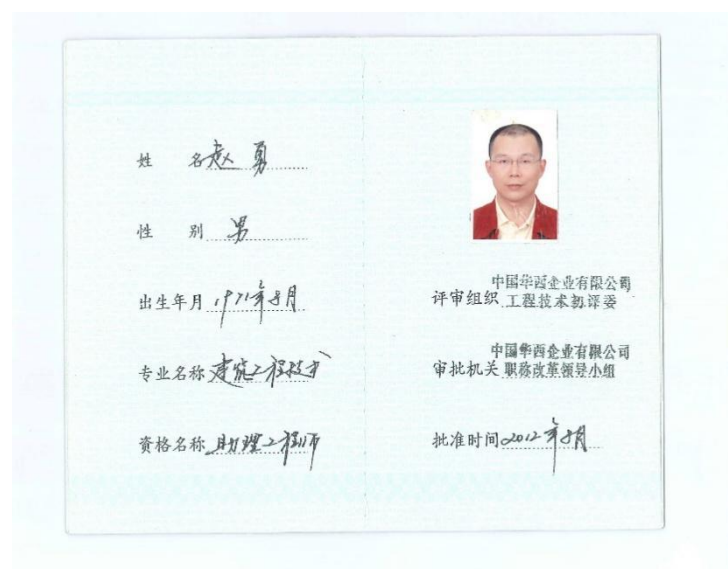 姓 名 赵勇
性 别 男
出生年月 1971年8月
专业名称 建筑工程技术
资格名称 助理工程师
中国华西企业有限公司
评审组织 工程技术初评委
中国华西企业有限公司
审批机关 职称改革领导小组
批准时间 2012年8月